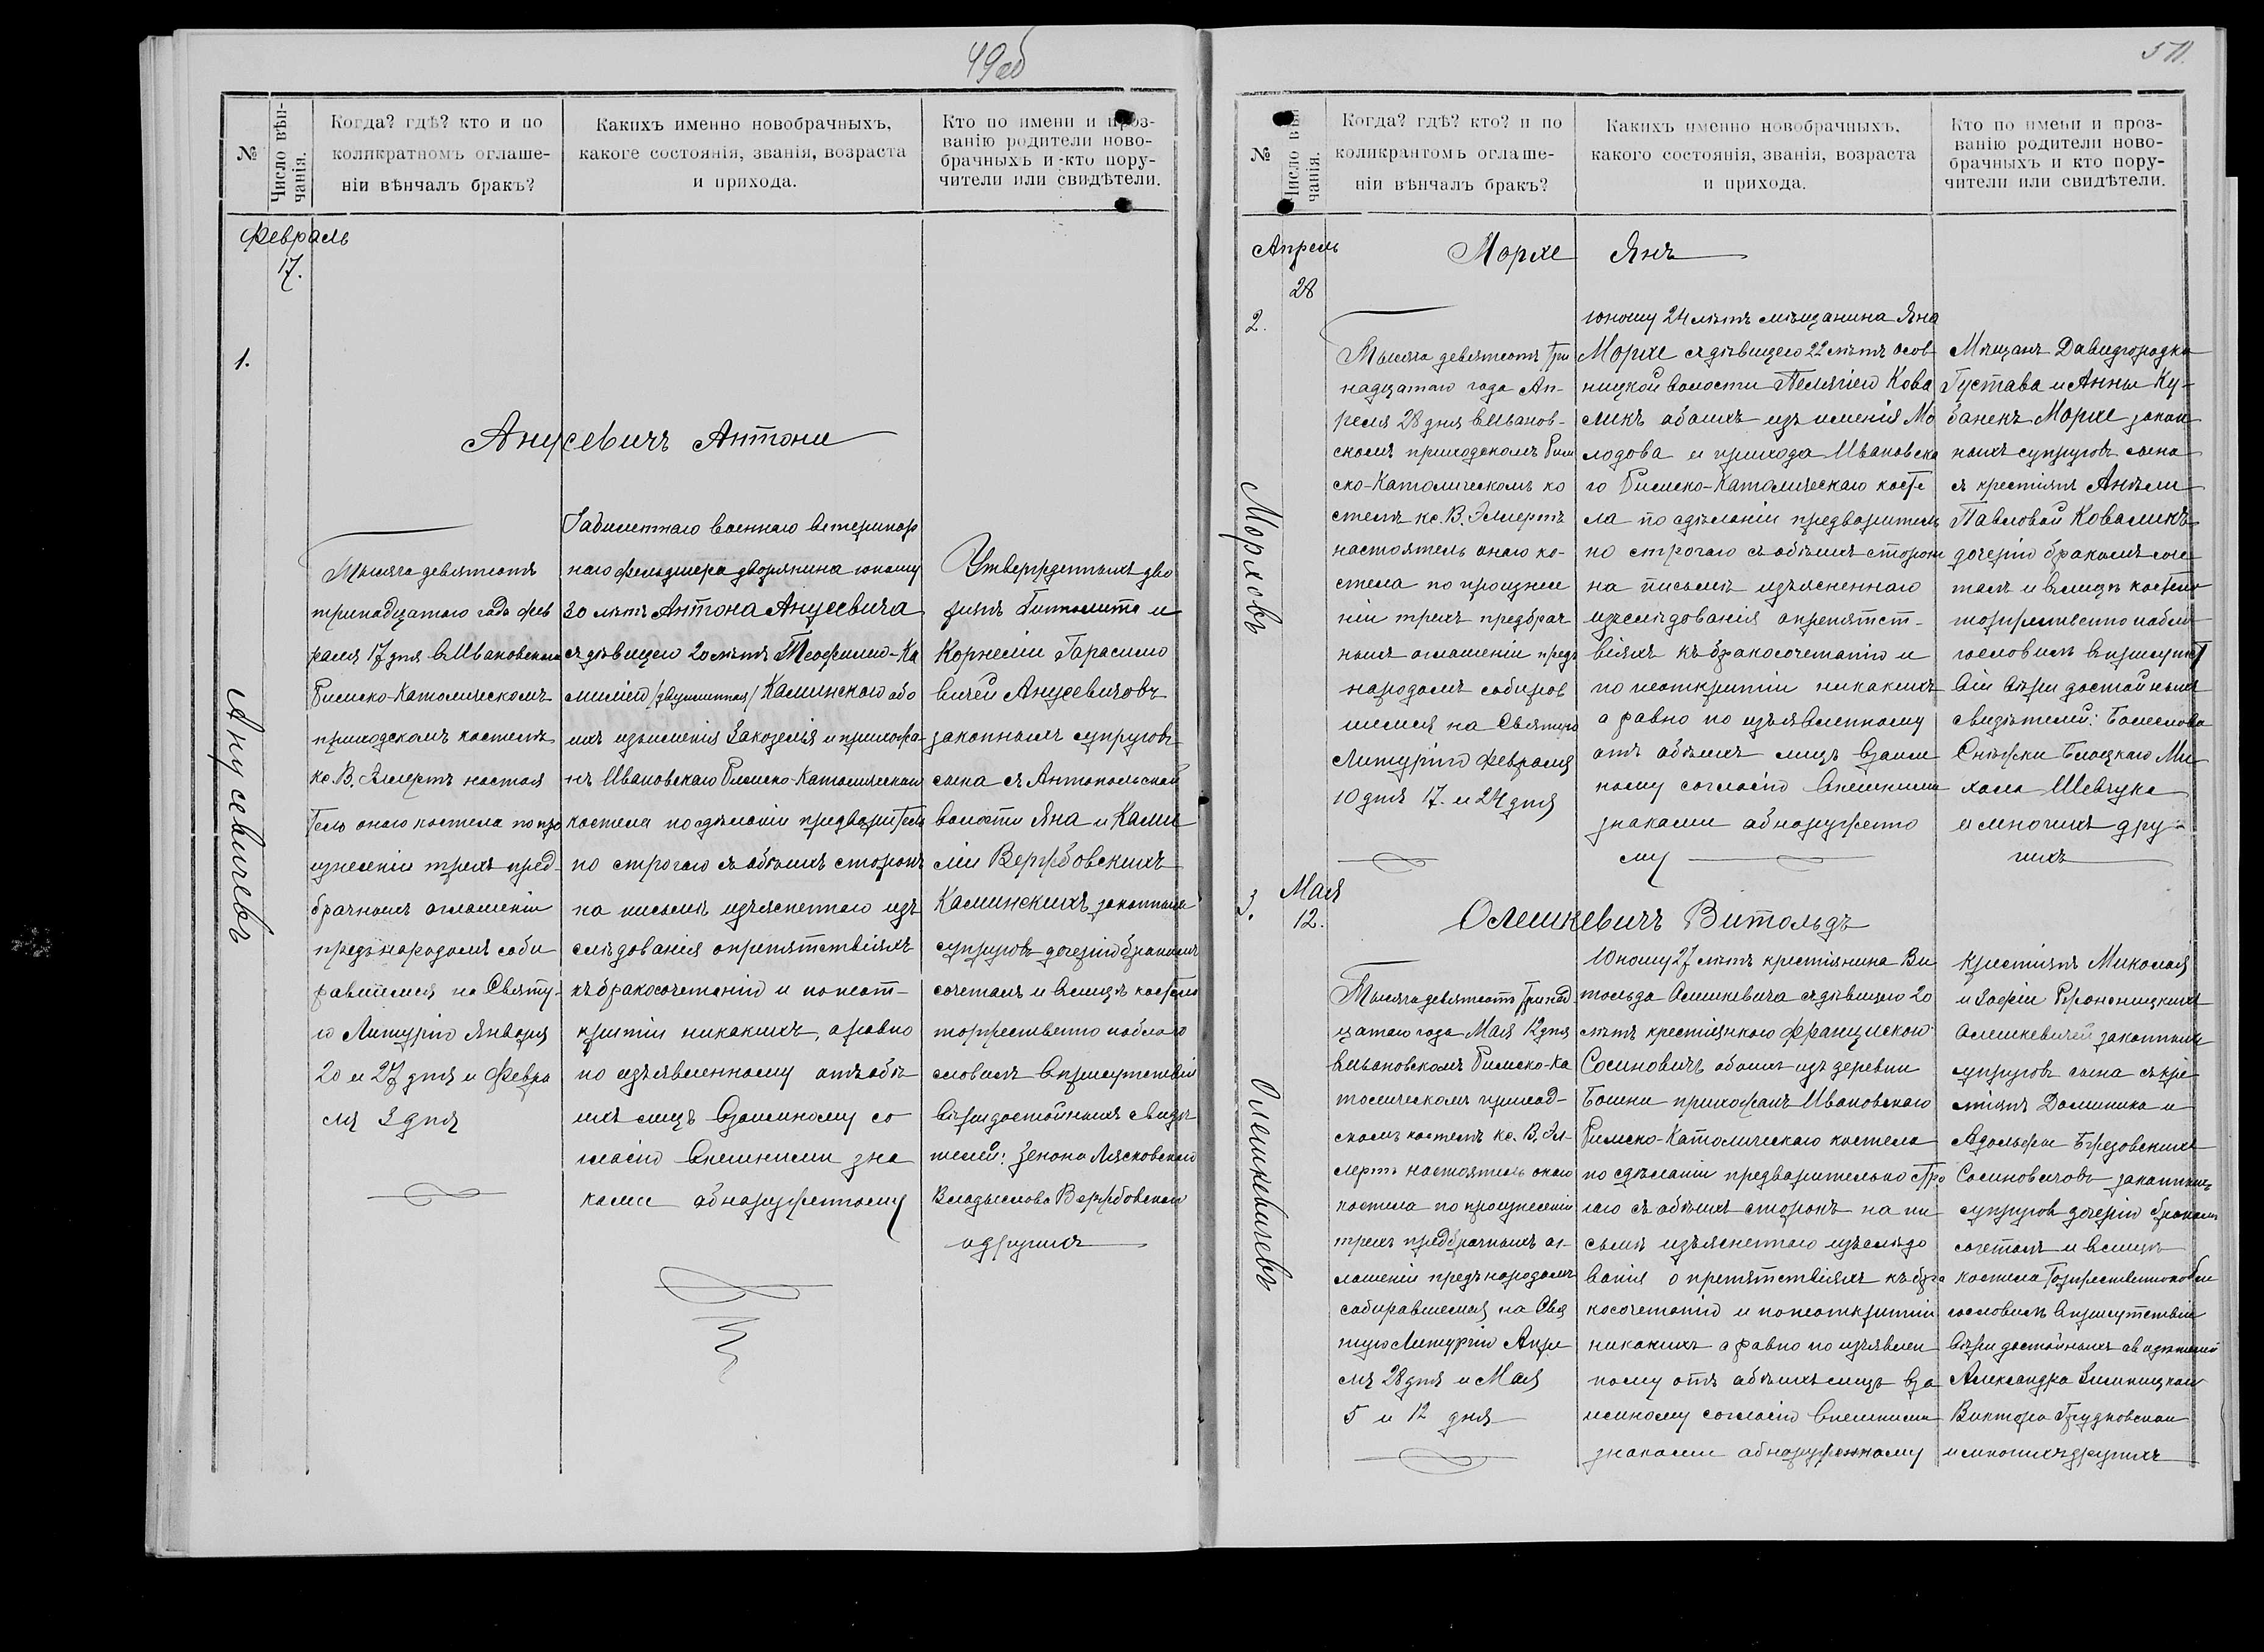 49об
№
Число вѣн-
чанія.
Когда? гдѣ? кто и по
коликратномъ оглаше-
ніи вѣнчалъ бракъ?
Какихъ именно новобрачныхъ,
какоге состоянія, званія, возраста
и прихода.
Кто по имени и проз-
ванію родители ново-
брачныхъ и кто пору-
чители или свидѣтели.
Февраль
17.
1.
Анусевичъ Антони
Анусевичевъ
Тысяча девятсотъ
тринадцатаго года Фев
раля 17 дня въ Ивановскомъ
Римско-Католическомъ
приходскомъ костелѣ
кс. В. Эллертъ настоя
тель онаго костела по про
изнесеніи трехъ пред-
брачныхъ оглашеніи
предъ народомъ соби
равшемся на Святу-
ю Литургію Января
20 и 27 дня и Февра
ля 3 дня
военнаго ветеринар
наго фельдшера дворянина юношу
30 лѣтъ Антона Анусевича
съ дѣвицею 20 лѣтъ Теофилію-Ка
милію /двуименная/ Каминскою обо
ихъ изъ имѣнія Закозелья и прихожа-
нъ Ивановскаго Римско-Католическаго
костела по сдѣланіи предварители
но строгаго съ обѣихъ сторонъ
на письмѣ изъясненнаго изъ
слѣдованія о препятствіяхъ
къ бракосочетанію и по неот-
крытіи никакихъ, а равно
по изъявленному отъ обѣ
ихъ лицъ взаимному со
гласію внешними зна
ками обнаруженному
Утвержденныхъ дво
рянъ Ипполита и
Корнеліи Гарасимо
вичей Анусевичовъ
законныхъ супруговъ
сына съ Антопольской
волости Яна и Ками
ліи Вержбовскихъ
Каминскихъ законныхъ
супруговъ дочерію бракомъ
сочеталъ и въ лицѣ костела
торжественно поблаго
словилъ въ присутствіи
вѣры достойныхъ свидѣ
телей: Зенона Лясковскаго
Владыслова Вержбовскаго
и другихъ
50
№
Число вѣн
чанія.
Когда? гдѣ? кто? и по
коликрантомъ оглаше-
ніи вѣнчалъ бракъ?
Какихъ именно новобрачныхъ,
какого состоянія, званія, возраста
и прихода.
Кто по имени и проз-
ванію родители ново-
брачныхъ и кто пору-
чители или свидѣтели.
Апрель
28
Морхе Янъ
2.
Морховъ
Тысяча девятсотъ три
надцатаго года Ап-
реля 28 дня въ Иванов-
скомъ приходскомъ Рим
ско-Католическомъ ко
стелѣ кс. В. Эллертъ
настоятель онаго ко-
стела по произнесе
ніи трехъ предбрач
ныхъ оглашеніи предъ
народомъ собирав
шемся на Святую
Литургію Февраля
10 дня 17. и 24 дня
юношу 24 лѣтъ мѣщанина Яна
Морхе съ дѣвицею 22 лѣтъ Осов
ницкой волости Пелягіею Кова
ликъ обоихъ изъ имѣнія Мо
лодова и прихода Ивановска
го Римско-Католическаго косте
ла по сдѣланіи предваритель
но строгаго съ обѣихъ сторонъ
на письмѣ изъясненнаго
изслѣдованія о препятст-
віяхъ къ бракосочетанію и
по неоткрытіи никакихъ
а равно по изъявленному
отъ обѣихъ лицъ взаим
ному согласію внешними
знаками обнаруженно
му
Мѣщанъ Давидгородка
Густава и Анны Ку-
банекъ Морхе закон
ныхъ супруговъ сына
съ крестіянъ Анѣли
Павловой Коваликъ
дочерію бракомъ соче
талъ и въ лицѣ костела
торжественно поблаг
гословилъ въ присутст
віи вѣры достойныхъ
свидѣтелей: Болеслова
Михала Шевчука
и многихъ дру-
гихъ
Мая
3.
12.
Олешкевичъ Витольдъ
Олешкевичевъ
Тысяча девятсотъ тринад
цатаго года Мая 12 дня
въ Ивановскомъ Римско-Ка
толическомъ приход-
скомъ костелѣ кс. В. Эл-
лертъ настоятель онаго
костела по произнесеніи
трехъ предбрачныхъ ог-
лашеніи предъ народомъ
собиравшемся на Свя
тую Литургію Апре
ля 28 дня и Мая
5 и 12 дня
Юношу 27 лѣтъ крестіянина Ви
тольда Олешкевича съ дѣвицею 20
лѣтъ крестіянкою Францискою
Сосиновичъ обоихъ изъ деревни
Башни прихожанъ Ивановскаго
Римско-Католическаго костела
по сдѣланіи предварительно стро
гаго съ обѣихъ сторонъ на пи
сьмѣ изъясненнаго изслѣдо
ванія о препятствіяхъ къ бра
косочетанію и по неоткрытіи
никакихъ а равно по изъявлен
ному отъ обѣихъ лицъ вза
имному согласію внешними
знаками обнаруженному
Крестіянъ Миколая
и Зофіи
Олешкевичей законныхъ
супруговъ сына съ кре
стіянъ Доминика и
Адольфы Брезовскихъ
Сосиновичовъ законныхъ
супруговъ дочерію бракомъ
сочеталъ и въ лицѣ
костела торжественно побла
гословилъ въ присутствіи
вѣры достойныхъ свидѣтелей
Александра Зимницкаго
Виктора Грудковскаго
и многихъ другихъ